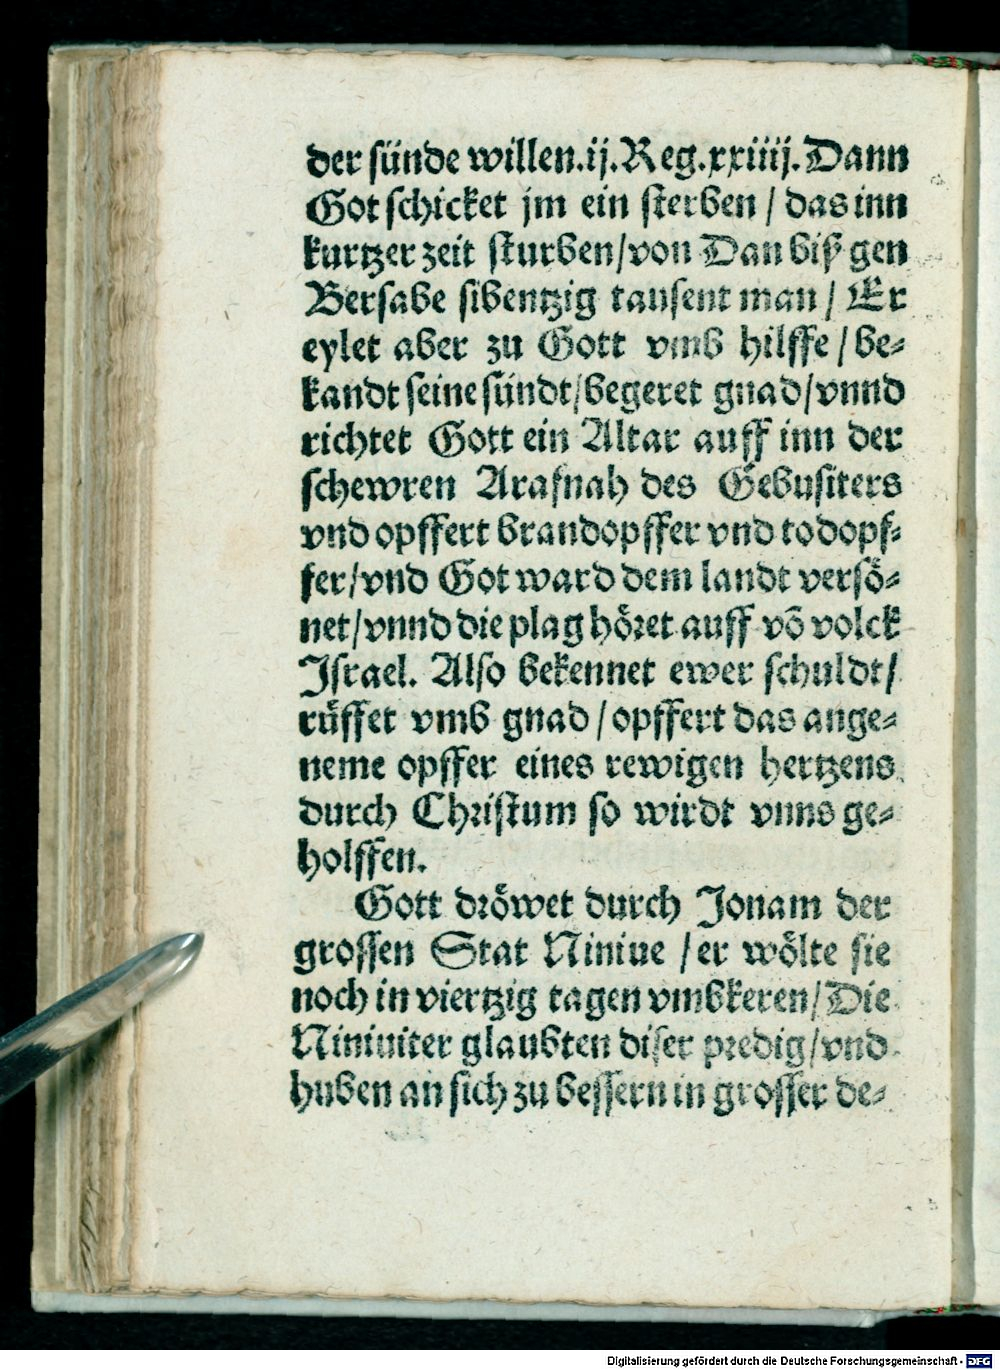 der sünde willen.ij.Reg.xxiiij.Dann
Got schicket jm ein sterben / das inn
kurtzer zeit sturben/von Dan biß gen
Bersabe sibentzig tausent man / Er
eylet aber zu Gott vmb hilffe / be⸗
kandt seine sündt/begeret gnad/vnnd
richtet Gott ein Altar auff inn der
schewren Arafnah des Gebusiters
vnd opffert brandopffer vnd todopf⸗
fer/vnd Got ward dem landt versö⸗
net/vnnd die plag höret auff võ volck
Israel. Also bekennet ewer schuldt/
rüffet vmb gnad / opffert das ange⸗
neme opffer eines rewigen hertzens
durch Christum so wirdt vnns ge⸗
holffen.
Gott dröwet durch Jonam der
grossen Stat Niniue / er wölte sie
noch in viertzig tagen vmbkeren/Die
Niniuiter glaubten diser predig/vnd
huben an sich zu bessern in grosser de⸗
Digitalisierung gefördert durch die Deutsche Forschungsgemeinschaft - DFG